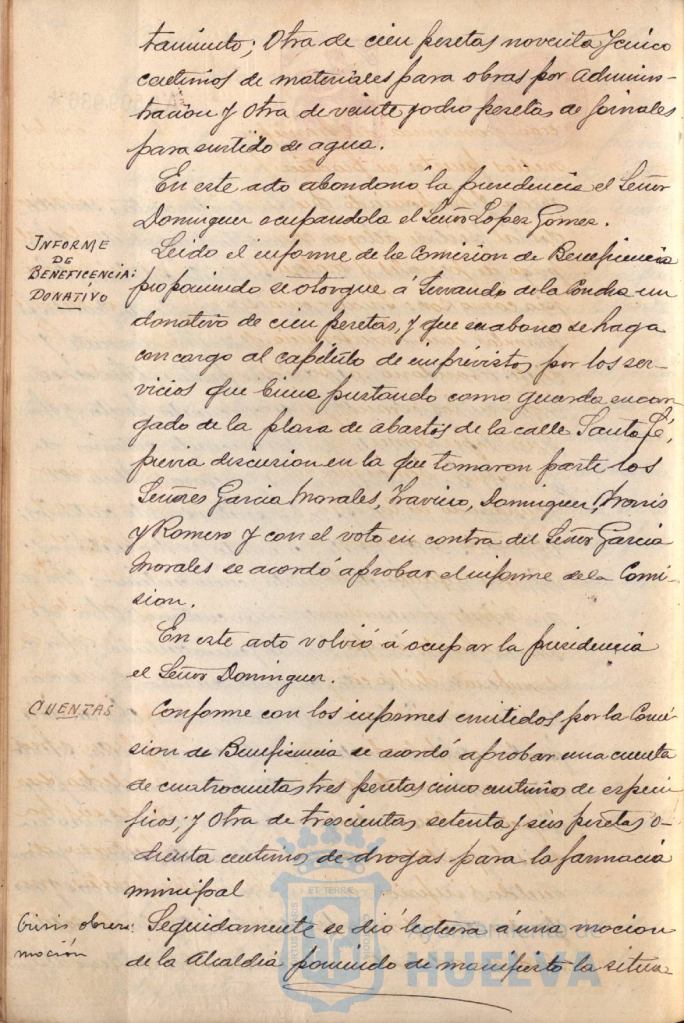 tamiento; Otra de cien pesetas noventa y cinco
centimos de materiales para obras por Adminis-
tracion y otra de veinte y ocho pesetas de jornales
para surtido de agua.
En este acto abandonó la presidencia el Señor
Dominguez ocupandola el Señor Lopez Gomez.
INFORME
DE
BENEFICENCIA:
DONATIVO
Leido el informe de la Comision de Beneficencia
proponiendo se otorgue á Servando de la Concha un
donativo de cien pesetas, y que su abono se haga
con cargo al capítulo de imprevistos, por los ser-
vicios que viene prestando como guarda encar
gado de la plaza de abastos de la calle Santa Fé,
previa discusion en la que tomaron parte los
Señores Garcia Morales, Dominguez,
y Romero y con el voto en contra del Señor Garcia
Morales se acordó aprobar el informe de la Comi-
sion.
En este acto volvió á ocupar la presidencia
el Señor Dominguez.
CUENTAS
Conforme con los informes emitidos por la Comi-
sion de Beneficencia se acordó aprobar una cuenta
de cuatrocientas tres pesetas cinco centimos de especi-
ficos; y otra de trescientas setenta y seis pesetas o-
chenta centimos de drogas para la farmacia
municipal
Crisis obrera:
moción
Seguidamente se dió lectura á una mocion
de la Alcaldia poniendo de manifiesto la situa-
Ayuntamiento de
HUELVA